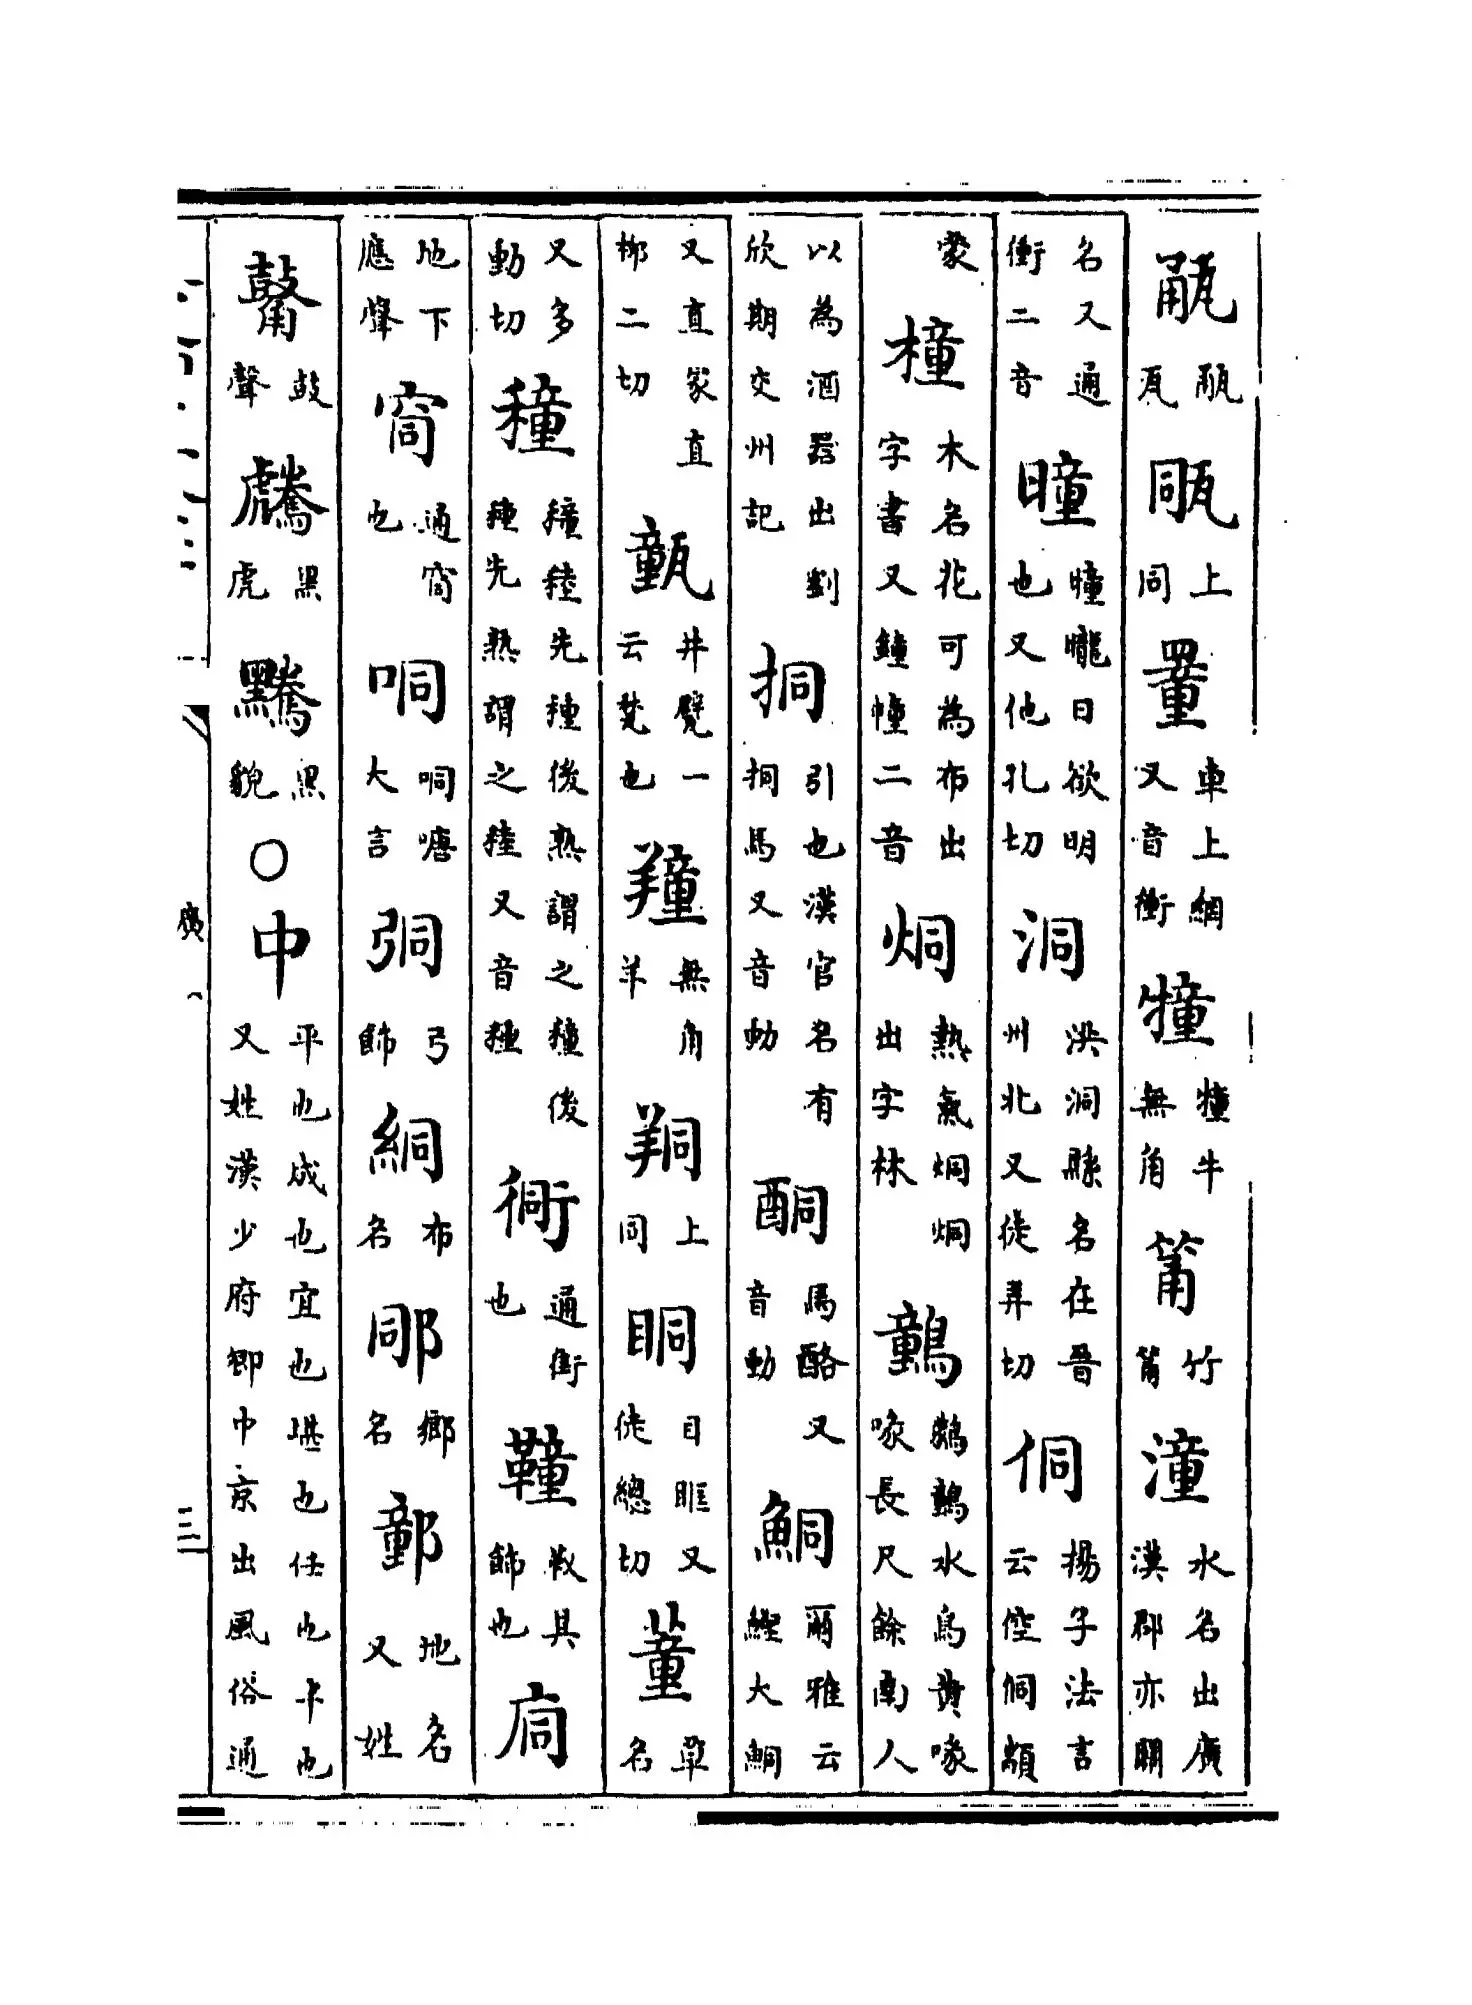 𤭁𤭁瓦㼧上同罿車上網又音衝犝犝牛無角筩竹筩潼水名出廣漢郡亦關
名又通衝二音曈曈曨日欲明也又他孔切洞洪洞縣名在晉州北又徒弄切侗揚子法言云倥侗顓
蒙橦木名花可為布出字書又鐘幢二音烔熱氣烔烔出字林水鳥黃喙喙長尺餘南人
以為酒器出劉欣期交州記挏引也漢官名有挏馬又音動酮馬酪又音動鮦爾雅云鰹大鮦
又直冢直柳二切㼿井甓一云甃也無角羊上同眮目眶又徒總切董草名
又多動切穜穜稑先種後熟謂之穜後種先熟謂之稑又音種衕通街也具飾也
下應聲通窗也哃哃㗅大言弓飾絧布名鄉名地名又姓
鼓聲黑虎黑貌〇中平也成也宜也堪也任也半也又姓漢少府卿中京出風俗通
廣
三